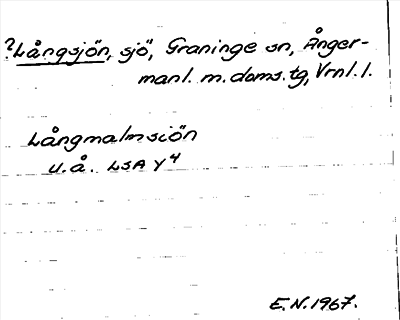 ?Långsjön, sjö, Graninge sn, Ånger-
manl. m. doms.tg, Vrnl. l.
Långmalmsiön
u.å. LSA Y4
E.N. 1967.